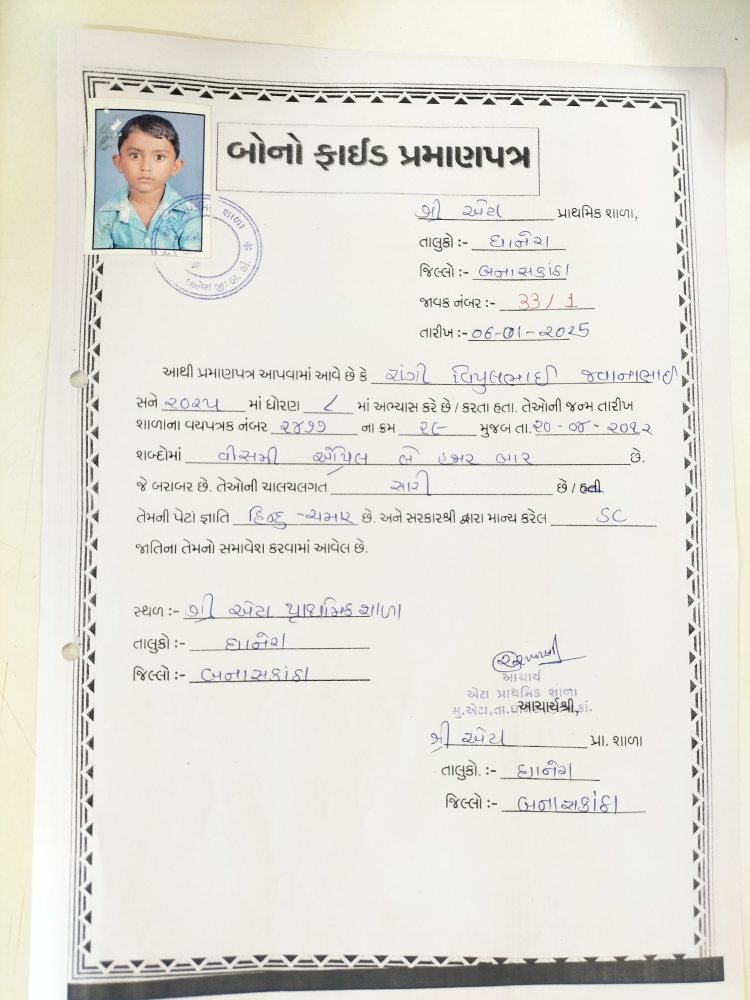 બોનો ફાઈડ પ્રમાણપત્ર
શ્રી એટા પ્રાથમિક શાળા,
તાલુકો :- ધાનેરા
જિલ્લો :- બનાસકાંઠા
જાવક નંબર :- 33/1
તારીખ :- 06-01-2025
આથી પ્રમાણપત્ર આપવામાં આવે છે કે રાંગી વિપુલભાઈ જવાનાભાઈ
સને ૨૦૨૫ માં ધોરણ ૮ માં અભ્યાસ કરે છે / કરતા હતા. તેઓની જન્મ તારીખ
શાળાના વયપત્રક નંબર ૨૪૭૭ ના ક્રમ ૨૯ મુજબ તા. ૨૦-૦૪-૨૦૧૨
શબ્દોમાં વીસમી એપ્રિલ બે હજાર બાર છે.
જે બરાબર છે. તેઓની ચાલચલગત સારી છે / હતી
તેમની પેટા જ્ઞાતિ હિન્દુ-ચમાર છે. અને સરકારશ્રી દ્વારા માન્ય કરેલ SC
જાતિના તેમનો સમાવેશ કરવામાં આવેલ છે.
સ્થળ :- શ્રી એટા પ્રાથમિક શાળા
તાલુકો :- ધાનેરા
જિલ્લો :- બનાસકાંઠા
આચાર્ય
એટા પ્રાથમિક શાળા
મુ.એટા,તા.ધાનેરા
આચાર્યશ્રી,
શ્રી એટા પ્રા. શાળા
તાલુકો. :- ધાનેરા
જિલ્લો :- બનાસકાંઠા